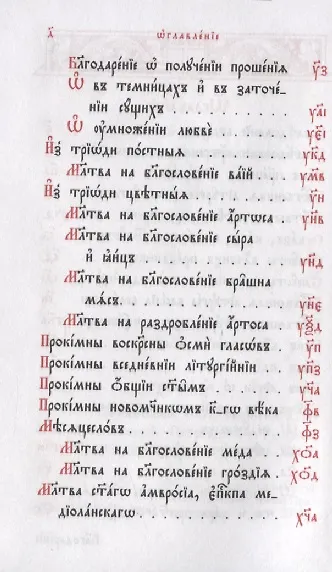 х҃ ѡ҆главле́нїе
Бл҃годаре́нїе ѡ҆ получе́нїи проше́нїѧ у҃з
Ѡ҆ въ темни́цахъ и҆ въ заточе́-
нїи сꙋ́щихъ . . . . . . . . . . . . . . у҃аі
Ѡ҆ ᲂу҆множе́нїи любвѐ . . . . . . . . у҃еі
И҆з̾ трїѡ́ди по́стныѧ . . . . . . . . . . у҃кд
Мл҃тва на бл҃гослове́нїе ва́їй . . . . у҃мв
И҆з̾ трїѡ́ди цвѣ́тныѧ . . . . . . . . . у҃н
Мл҃тва на бл҃гослове́нїе а҆́ртоса . . у҃н
Мл҃тва на бл҃гослове́нїе сы́ра
и҆ ꙗ҆и́цъ . . . . . . . . . . . . . . . у҃нд
Мл҃тва на бл҃гослове́нїе бра̑шна
мѧ́съ . . . . . . . . . . . . . . . . у҃не
Мл҃тва на раздробле́нїе а҆́ртоса . . у҃ѯд
Проки́мны воскре́сны ѻ҆смѝ гласѡ́въ . у҃п
Проки́мны вседне́внїи лїтꙋргі́йнїи . . у҃пз
Проки́мны ѻ҆́бщїи ст҃ы̑мъ . . . . . . . у҃ча
Проки́мны новомч҃нкѡмъ к҃-гѡ вѣ́ка ф҃в
Мѣсѧцесло́въ . . . . . . . . . . . . . . ф҃з
Мл҃тва на бл҃гослове́нїе ме́да . . . х҃ѻа
Мл҃тва на бл҃гослове́нїе гро́здїѧ . . х҃ѻд
Мл҃тва ст҃а́гѡ а҆мвро́сїа, є҆пⷭ҇кпа ме-
дїола́нскагѡ . . . . . . . . . . . . . х҃ча